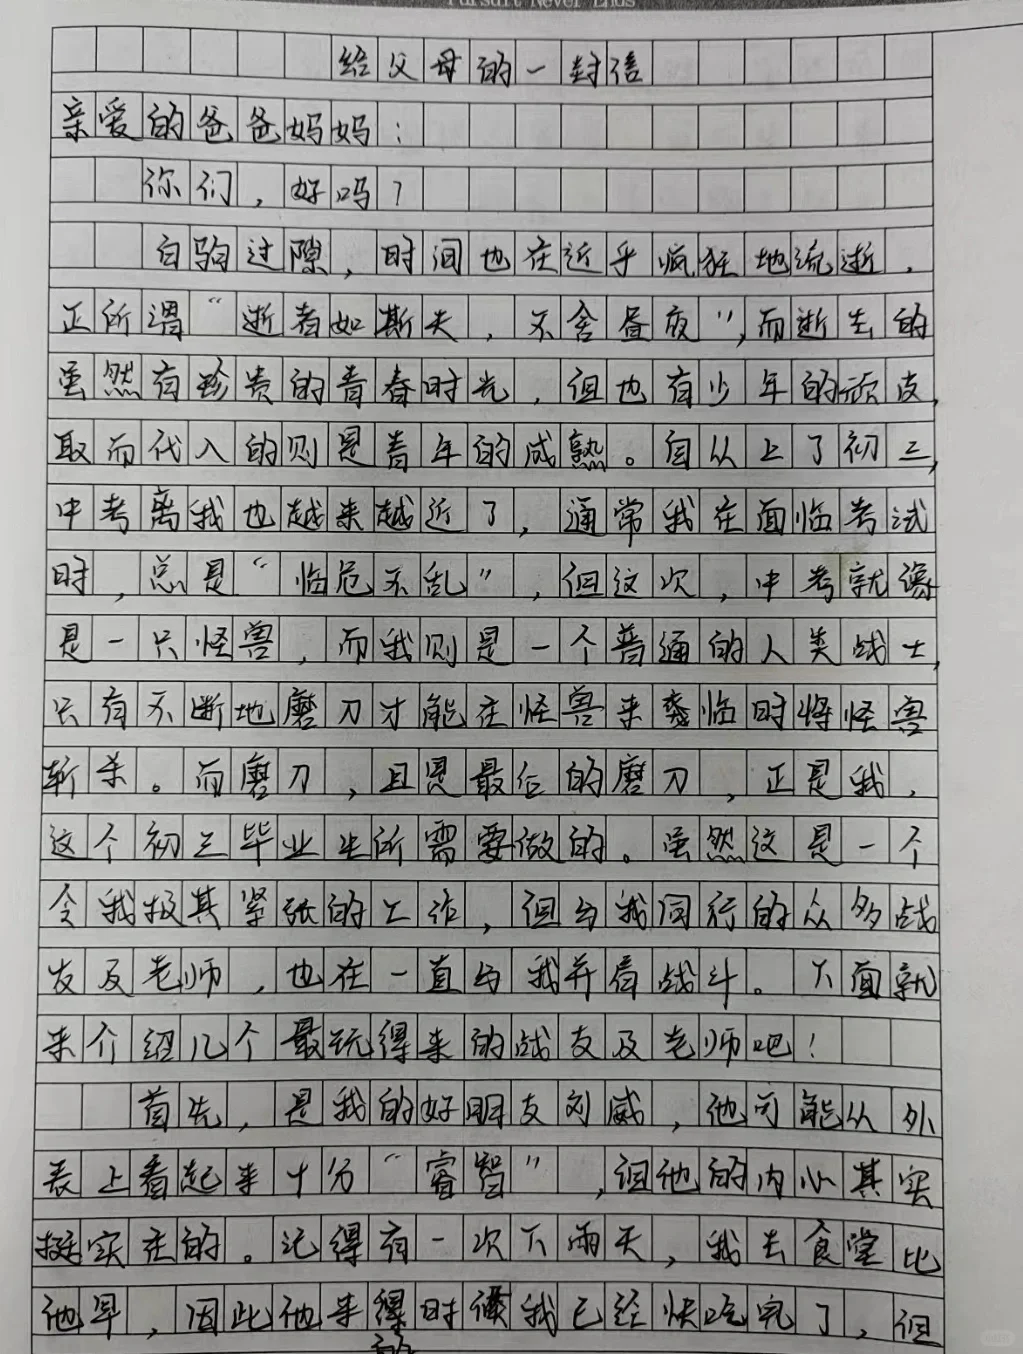 Pursuit Never Ends
给父母的一封信
亲爱的爸爸妈妈：
你们，好吗？
白驹过隙，时间也在近乎疯狂地流逝，
正所谓“逝者如斯夫，不舍昼夜”，而逝去的
虽然有珍贵的青春时光，但也有少年的顽皮，
取而代入的则是青年的成熟。自从上了初三，
中考离我也越来越近了，通常我在面临考试
时，总是“临危不乱”，但这次，中考就像
是一只怪兽，而我则是一个普通的人类战士，
只有不断地磨刀才能在怪兽来袭临时将怪兽
斩杀。而磨刀，且是最后的磨刀，正是我，
这个初三毕业生所需要做的。虽然这是一个
令我极其紧张的工作，但与我同行的众多战
友及老师，也在一直与我并肩战斗。下面就
来介绍几个最玩得来的战友及老师吧！
首先，是我的好朋友刘威，他可能从外
表上看起来十分“睿智”，但他的内心其实
挺实在的。记得有一次下雨天，我去食堂比
他早，因此他来得时候我已经快吃完了，但
的